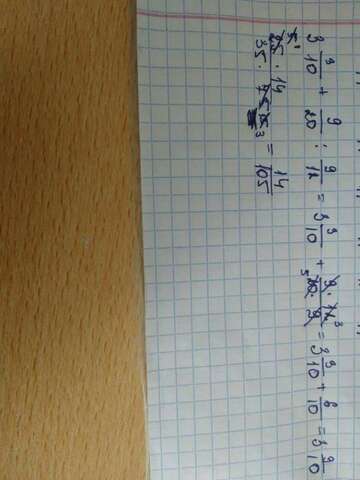 3 3/10 + 9/20 : 9/12 = 3 3/10 + 9 · 12 3/5 20 · 9 = 3 3/10 + 6/10 = 3 9/10
25 · 14/35 · 3 = 14/105